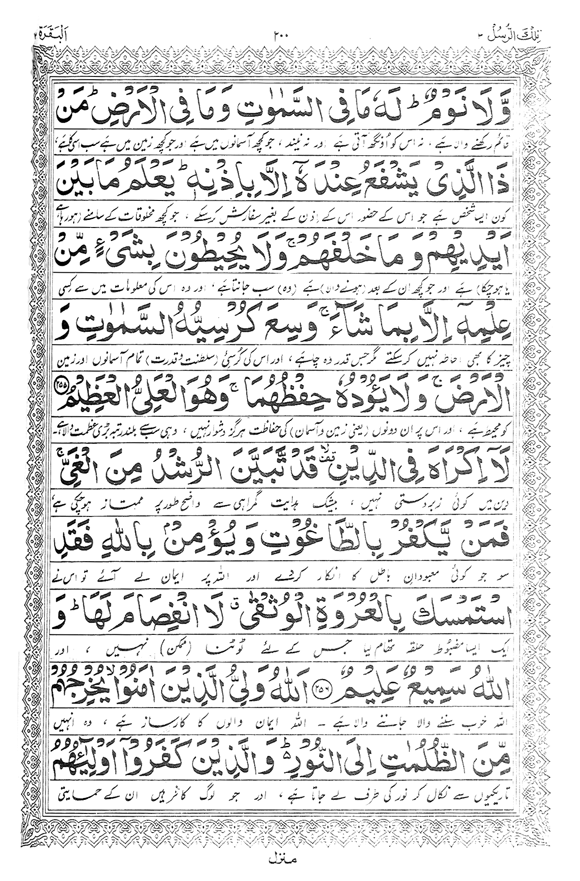 تلك الرسل ۳ ۲۰۰ البقرة ۲
وَّلَا نَوۡمٌ‌ؕ لَهٗ مَا فِى السَّمٰوٰتِ وَمَا فِى الۡاَرۡضِ‌ؕ مَنۡ
قائم رکھنے والا ہے، نہ اس کو اُونگھ آتی ہے اور نہ نیند، جو کچھ آسمانوں میں ہے اور جو کچھ زمین میں ہے سب اسی کا ہے،
ذَا الَّذِىۡ يَشۡفَعُ عِنۡدَهٗۤ اِلَّا بِاِذۡنِهٖ‌ؕ يَعۡلَمُ مَا بَيۡنَ
کون ایسا شخص ہے جو اس کے حضور اس کے اِذن کے بغیر سفارش کر سکے، جو کچھ مخلوقات کے سامنے (ہو رہا ہے
اَيۡدِيۡهِمۡ وَمَا خَلۡفَهُمۡ‌ۚ وَلَا يُحِيۡطُوۡنَ بِشَىۡءٍ مِّنۡ
یا ہو چکا) ہے اور جو کچھ ان کے بعد (ہونے والا) ہے (وہ) سب جانتا ہے، اور وہ اس کی معلومات میں سے کسی
عِلۡمِهٖۤ اِلَّا بِمَا شَآءَ‌ۚ وَسِعَ كُرۡسِيُّهُ السَّمٰوٰتِ وَ
چیز کا بھی احاطہ نہیں کر سکتے مگر جس قدر وہ چاہے، اور اس کی کُرسیٔ (سلطنت و قدرت) تمام آسمانوں اور زمین
الۡاَرۡضَ‌ۚ وَلَا يَـــُٔوۡدُهٗ حِفۡظُهُمَا‌ۚ وَهُوَ الۡعَلِىُّ الۡعَظِيۡمُ ﴿۲۵۵﴾
کو محیط ہے، اور اس پر ان دونوں (یعنی زمین و آسمان) کی حفاظت ہرگز دشوار نہیں، وہی سب سے بلند رتبہ بڑی عظمت والا ہے۔
لَاۤ اِكۡرَاهَ فِى الدِّيۡنِ‌ۙ قَد تَّبَيَّنَ الرُّشۡدُ مِنَ الۡغَىِّ‌ۚ
دین میں کوئی زبردستی نہیں، بیشک ہدایت گمراہی سے واضح طور پر ممتاز ہو چکی ہے
فَمَنۡ يَّكۡفُرۡ بِالطَّاغُوۡتِ وَيُؤۡمِنۡۢ بِاللّٰهِ فَقَدِ
سو جو کوئی معبودانِ باطل کا انکار کر دے اور اللہ پر ایمان لے آئے تو اس نے
اسۡتَمۡسَكَ بِالۡعُرۡوَةِ الۡوُثۡقٰى‌ۗ لَا انۡفِصَامَ لَهَا‌ؕ وَ
ایک ایسا مضبوط حلقہ تھام لیا جس کے لئے ٹوٹنا (ممکن) نہیں، اور
اللّٰهُ سَمِيۡعٌ عَلِيۡمٌ ﴿۲۵۶﴾ اَللّٰهُ وَلِىُّ الَّذِيۡنَ اٰمَنُوۡاۙ يُخۡرِجُهُمۡ
اللہ خوب سننے والا جاننے والا ہے۔ اللہ ایمان والوں کا کارساز ہے، وہ انہیں
مِّنَ الظُّلُمٰتِ اِلَى النُّوۡرِ‌ؕ وَالَّذِيۡنَ كَفَرُوۡۤا اَوۡلِيٰٓـئُهُمُ
تاریکیوں سے نکال کر نور کی طرف لے جاتا ہے، اور جو لوگ کافر ہیں ان کے حمایتی
منزل